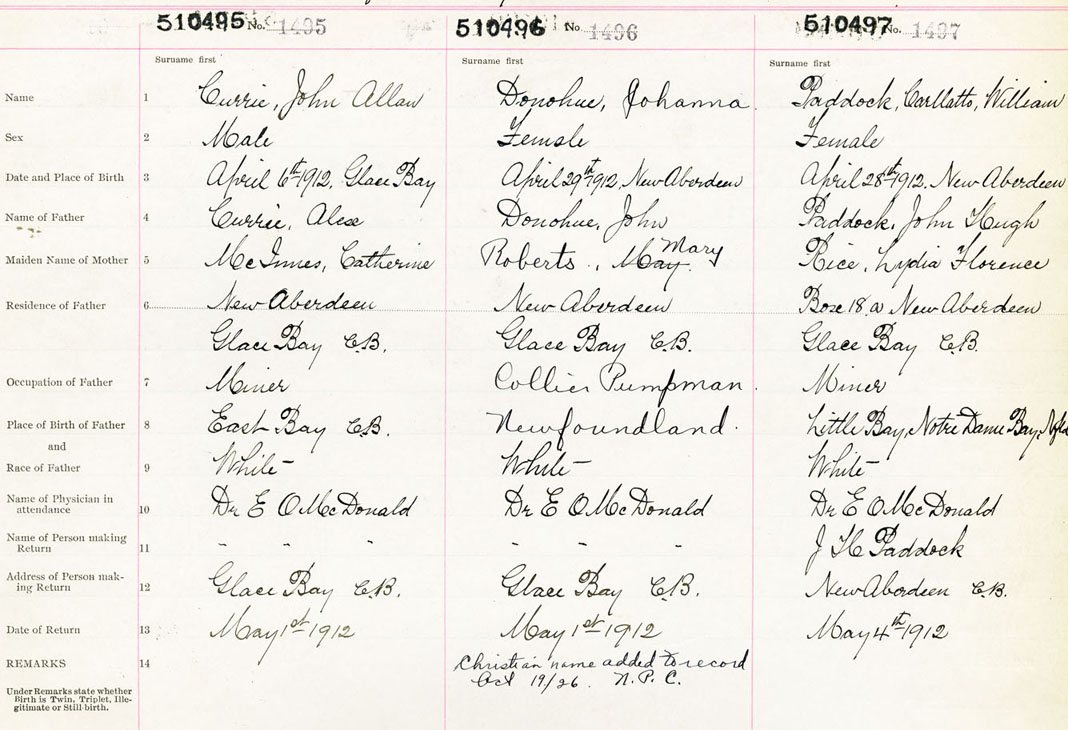 510495 No. 1495 510496 No 1496 510497 No. 1497
Surname first Surname first Surname first
Name 1 Currie, John Allan Donohue, Johanna. Paddock, Carllatto, William
Sex 2 Male Female Female
Date and Place of Birth 3 April 6th 1912, Glace Bay April 29th 1912, New Aberdeen April 28th 1912, New Aberdeen
Name of Father 4 Currie, Alex Donohue, John Paddock, John Hugh
Maiden Name of Mother 5 McInnes, Catherine Roberts, May Mary Rice, Lydia Florence
Residence of Father 6 New Aberdeen New Aberdeen Box 18.a New Aberdeen
Glace Bay C.B. Glace Bay C.B. Glace Bay C.B.
Occupation of Father 7 Miner Collier Pumpman. Miner
Place of Birth of Father 8 East Bay C.B. Newfoundland. Little Bay, Notre Dame Bay, Nfld
and
Race of Father 9 White White White
Name of Physician in
attendance 10 Dr E O McDonald Dr E O McDonald Dr E O McDonald
Name of Person making
Return 11 - - - - - - J H Paddock
Address of Person mak-
ing Return 12 Glace Bay C.B. Glace Bay C.B. New Aberdeen C.B.
Date of Return 13 May 1st 1912 May 1st 1912 May 4th 1912
REMARKS 14 Christian name added to record
Oct 19/26. N.P.C.
Under Remarks state whether
Birth is Twin, Triplet, Ille-
gitimate or Still-birth.